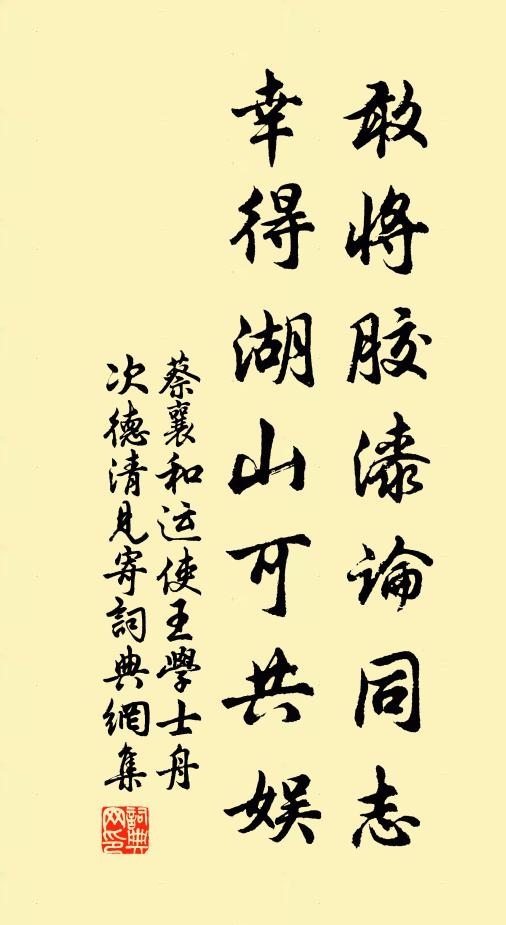 敢將膠漆論同志
幸得湖山可共娛
蔡襄和运使王學士舟
次德清見寄詞典網集
詞典
网印